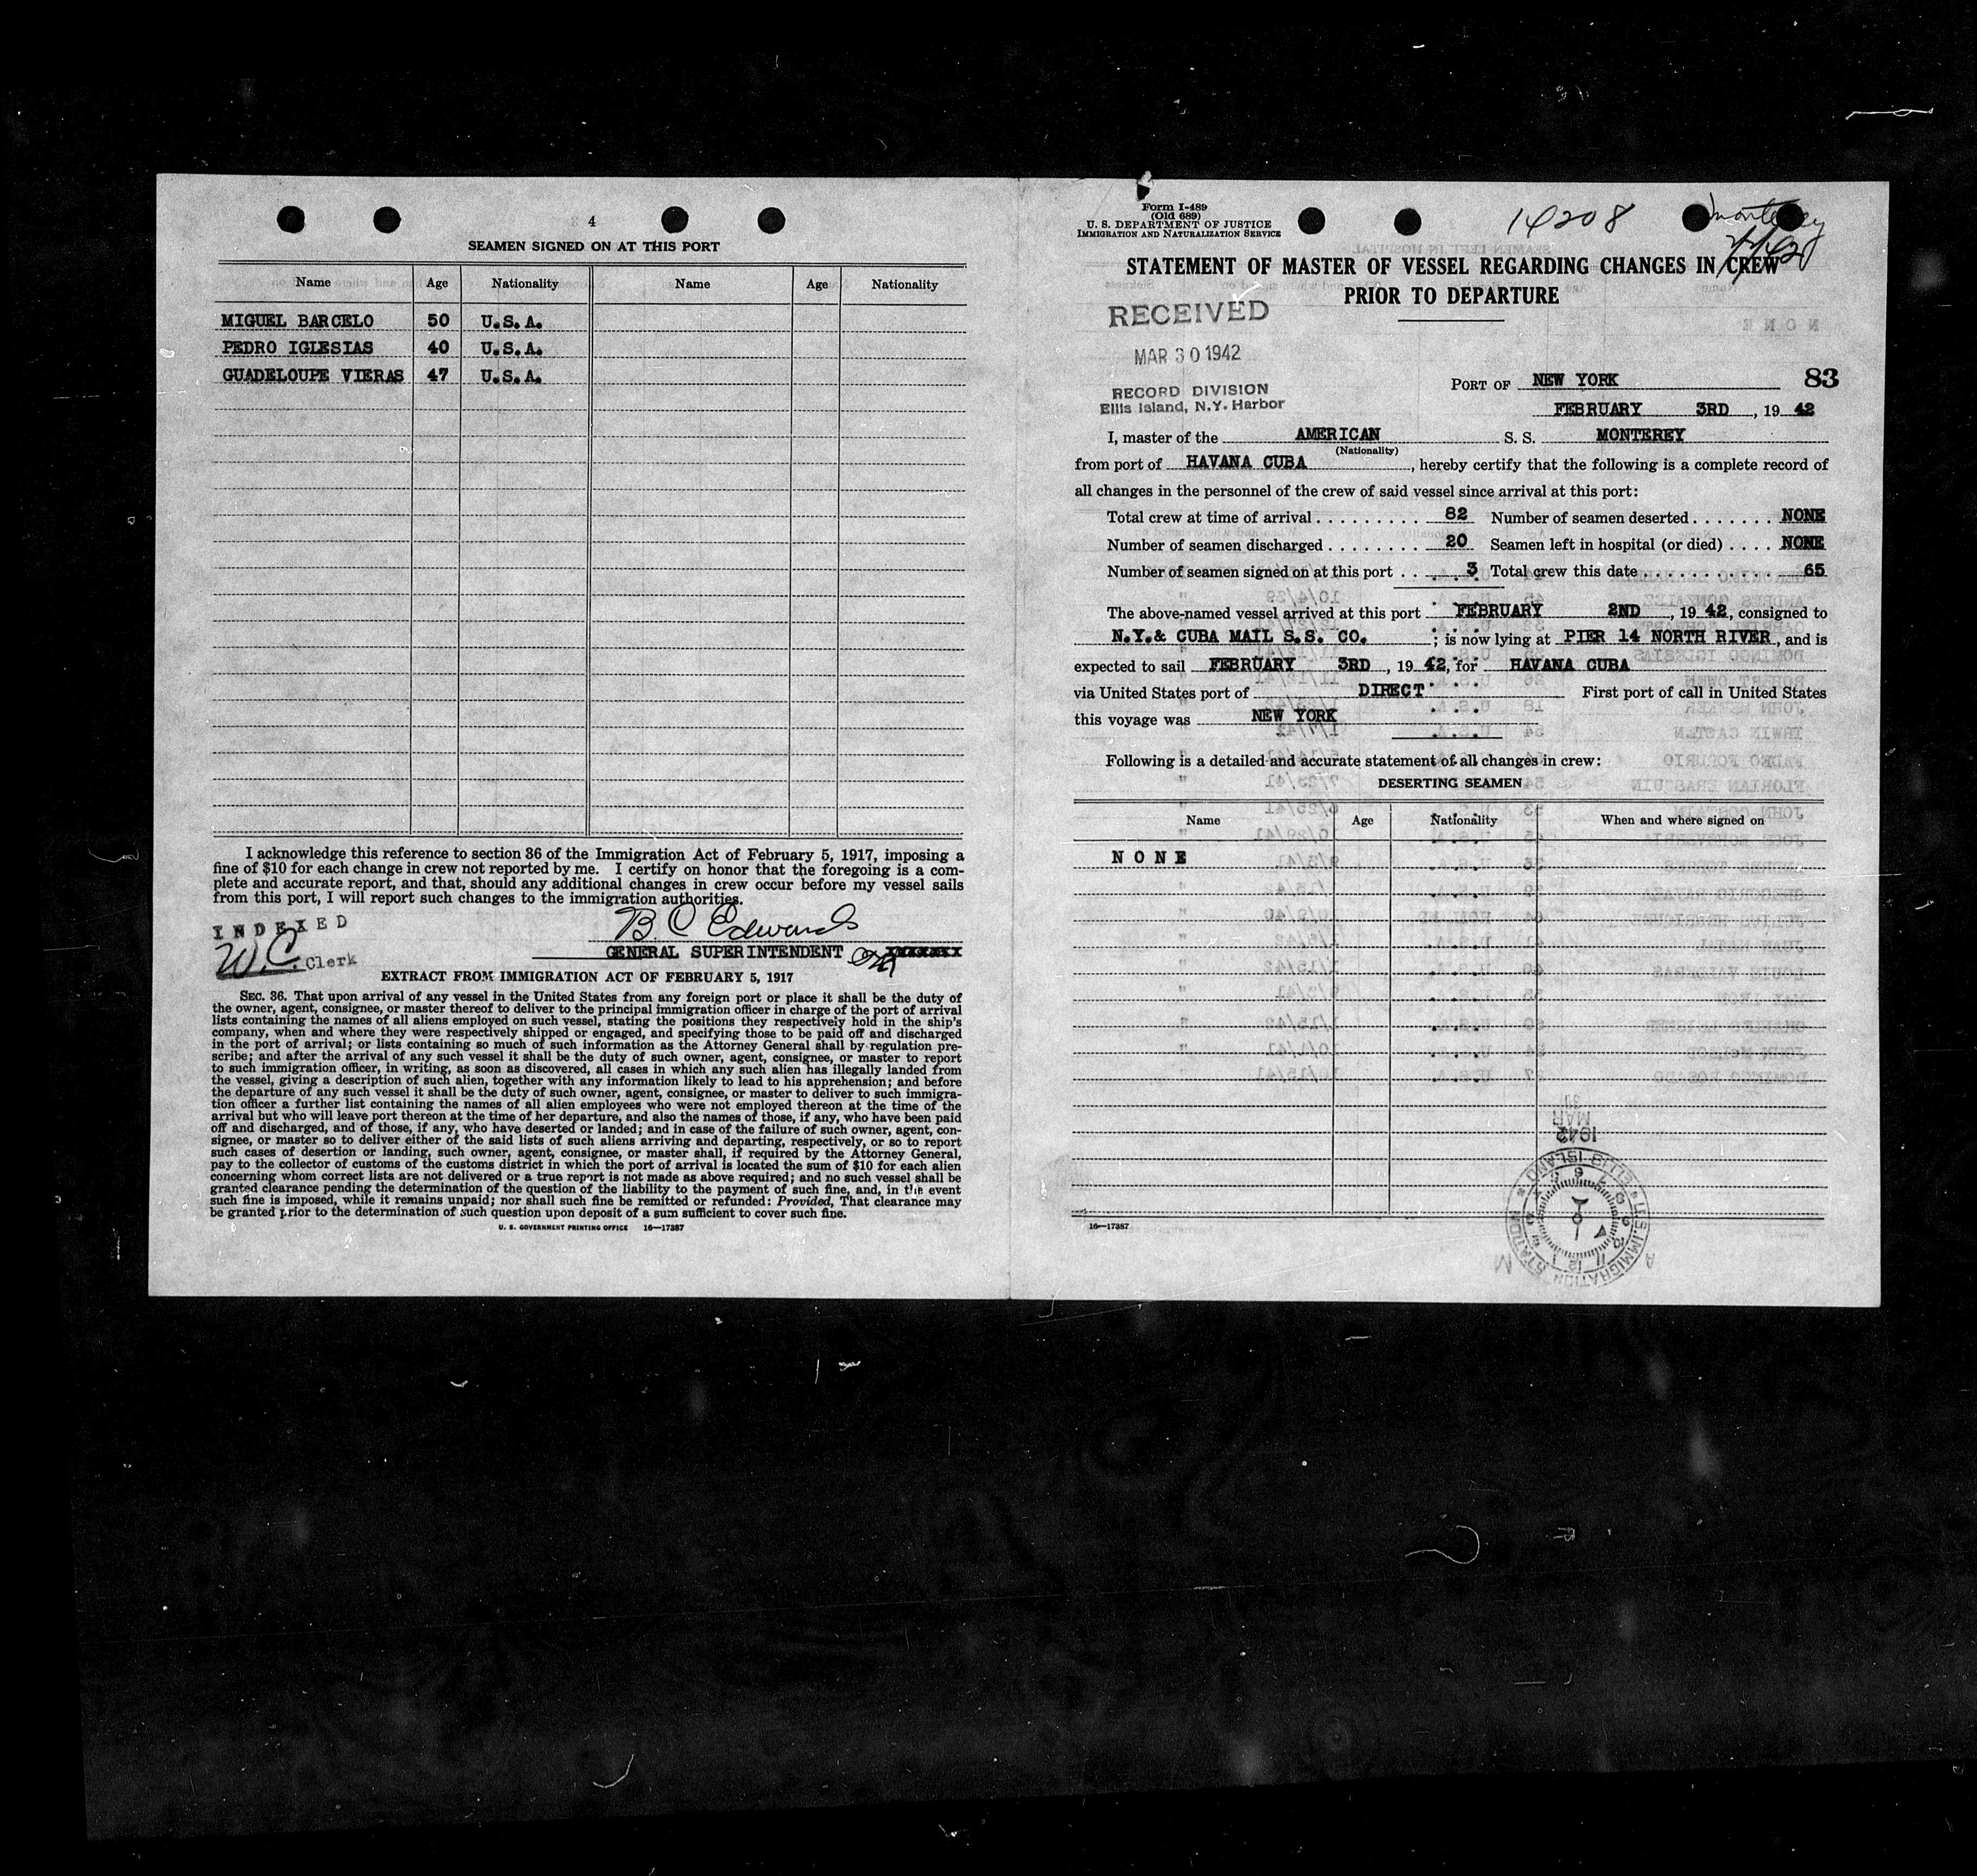 4
SEAMEN SIGNED ON AT THIS PORT
Name Age Nationality Name Age Nationality
MIGUEL BARCELO 50 U.S.A.
PEDRO IGLESIAS 40 U.S.A.
GUADELOUPE VIERAS 47 U.S.A.
I acknowledge this reference to section 36 of the Immigration Act of February 5, 1917, imposing a
fine of $10 for each change in crew not reported by me. I certify on honor that the foregoing is a com-
plete and accurate report, and that, should any additional changes in crew occur before my vessel sails
from this port, I will report such changes to the immigration authorities.
INDEXED
B C Edwards
W.C. Clerk
GENERAL SUPERINTENDENT
EXTRACT FROM IMMIGRATION ACT OF FEBRUARY 5, 1917
SEC. 36. That upon arrival of any vessel in the United States from any foreign port or place it shall be the duty of
the owner, agent, consignee, or master thereof to deliver to the principal immigration officer in charge of the port of arrival
lists containing the names of all aliens employed on such vessel, stating the positions they respectively hold in the ship's
company, when and where they were respectively shipped or engaged, and specifying those to be paid off and discharged
in the port of arrival; or lists containing so much of such information as the Attorney General shall by regulation pre-
scribe; and after the arrival of any such vessel it shall be the duty of such owner, agent, consignee, or master to report
to such immigration officer, in writing, as soon as discovered, all cases in which any such alien has illegally landed from
the vessel, giving a description of such alien, together with any information likely to lead to his apprehension; and before
the departure of any such vessel it shall be the duty of such owner, agent, consignee, or master to deliver to such immigra-
tion officer a further list containing the names of all alien employees who were not employed thereon at the time of the
arrival but who will leave port thereon at the time of her departure, and also the names of those, if any, who have been paid
off and discharged, and of those, if any, who have deserted or landed; and in case of the failure of such owner, agent, con-
signee, or master so to deliver either of the said lists of such aliens arriving and departing, respectively, or so to report
such cases of desertion or landing, such owner, agent, consignee, or master shall, if required by the Attorney General,
pay to the collector of customs of the customs district in which the port of arrival is located the sum of $10 for each alien
concerning whom correct lists are not delivered or a true report is not made as above required; and no such vessel shall be
granted clearance pending the determination of the question of the liability to the payment of such fine, and, in the event
such fine is imposed, while it remains unpaid; nor shall such fine be remitted or refunded: Provided, That clearance may
be granted prior to the determination of such question upon deposit of a sum sufficient to cover such fine.
U. S. GOVERNMENT PRINTING OFFICE 16—17387
Form I-489
(Old 689)
U. S. DEPARTMENT OF JUSTICE
IMMIGRATION AND NATURALIZATION SERVICE
14208
Monterey
STATEMENT OF MASTER OF VESSEL REGARDING CHANGES IN CREW
PRIOR TO DEPARTURE
RECEIVED
MAR 30 1942
RECORD DIVISION
Ellis Island, N.Y. Harbor
PORT OF NEW YORK 83
FEBRUARY 3RD, 19 42
I, master of the AMERICAN S. S. MONTEREY
(Nationality)
from port of HAVANA CUBA, hereby certify that the following is a complete record of
all changes in the personnel of the crew of said vessel since arrival at this port:
Total crew at time of arrival . . . . . . . . . 82 Number of seamen deserted . . . . . . . NONE
Number of seamen discharged . . . . . . . . 20 Seamen left in hospital (or died) . . . . NONE
Number of seamen signed on at this port . . 3 Total crew this date . . . . . . . . . . . 65
The above-named vessel arrived at this port FEBRUARY 2ND, 19 42, consigned to
N.Y.& CUBA MAIL S.S. CO. ; is now lying at PIER 14 NORTH RIVER, and is
expected to sail FEBRUARY 3RD, 19 42, for HAVANA CUBA
via United States port of DIRECT First port of call in United States
this voyage was NEW YORK
Following is a detailed and accurate statement of all changes in crew:
DESERTING SEAMEN
Name Age Nationality When and where signed on
NONE
16—17387
1942
MAR
30
U.S. IMMIGRATION STATION * ELLIS ISLAND *